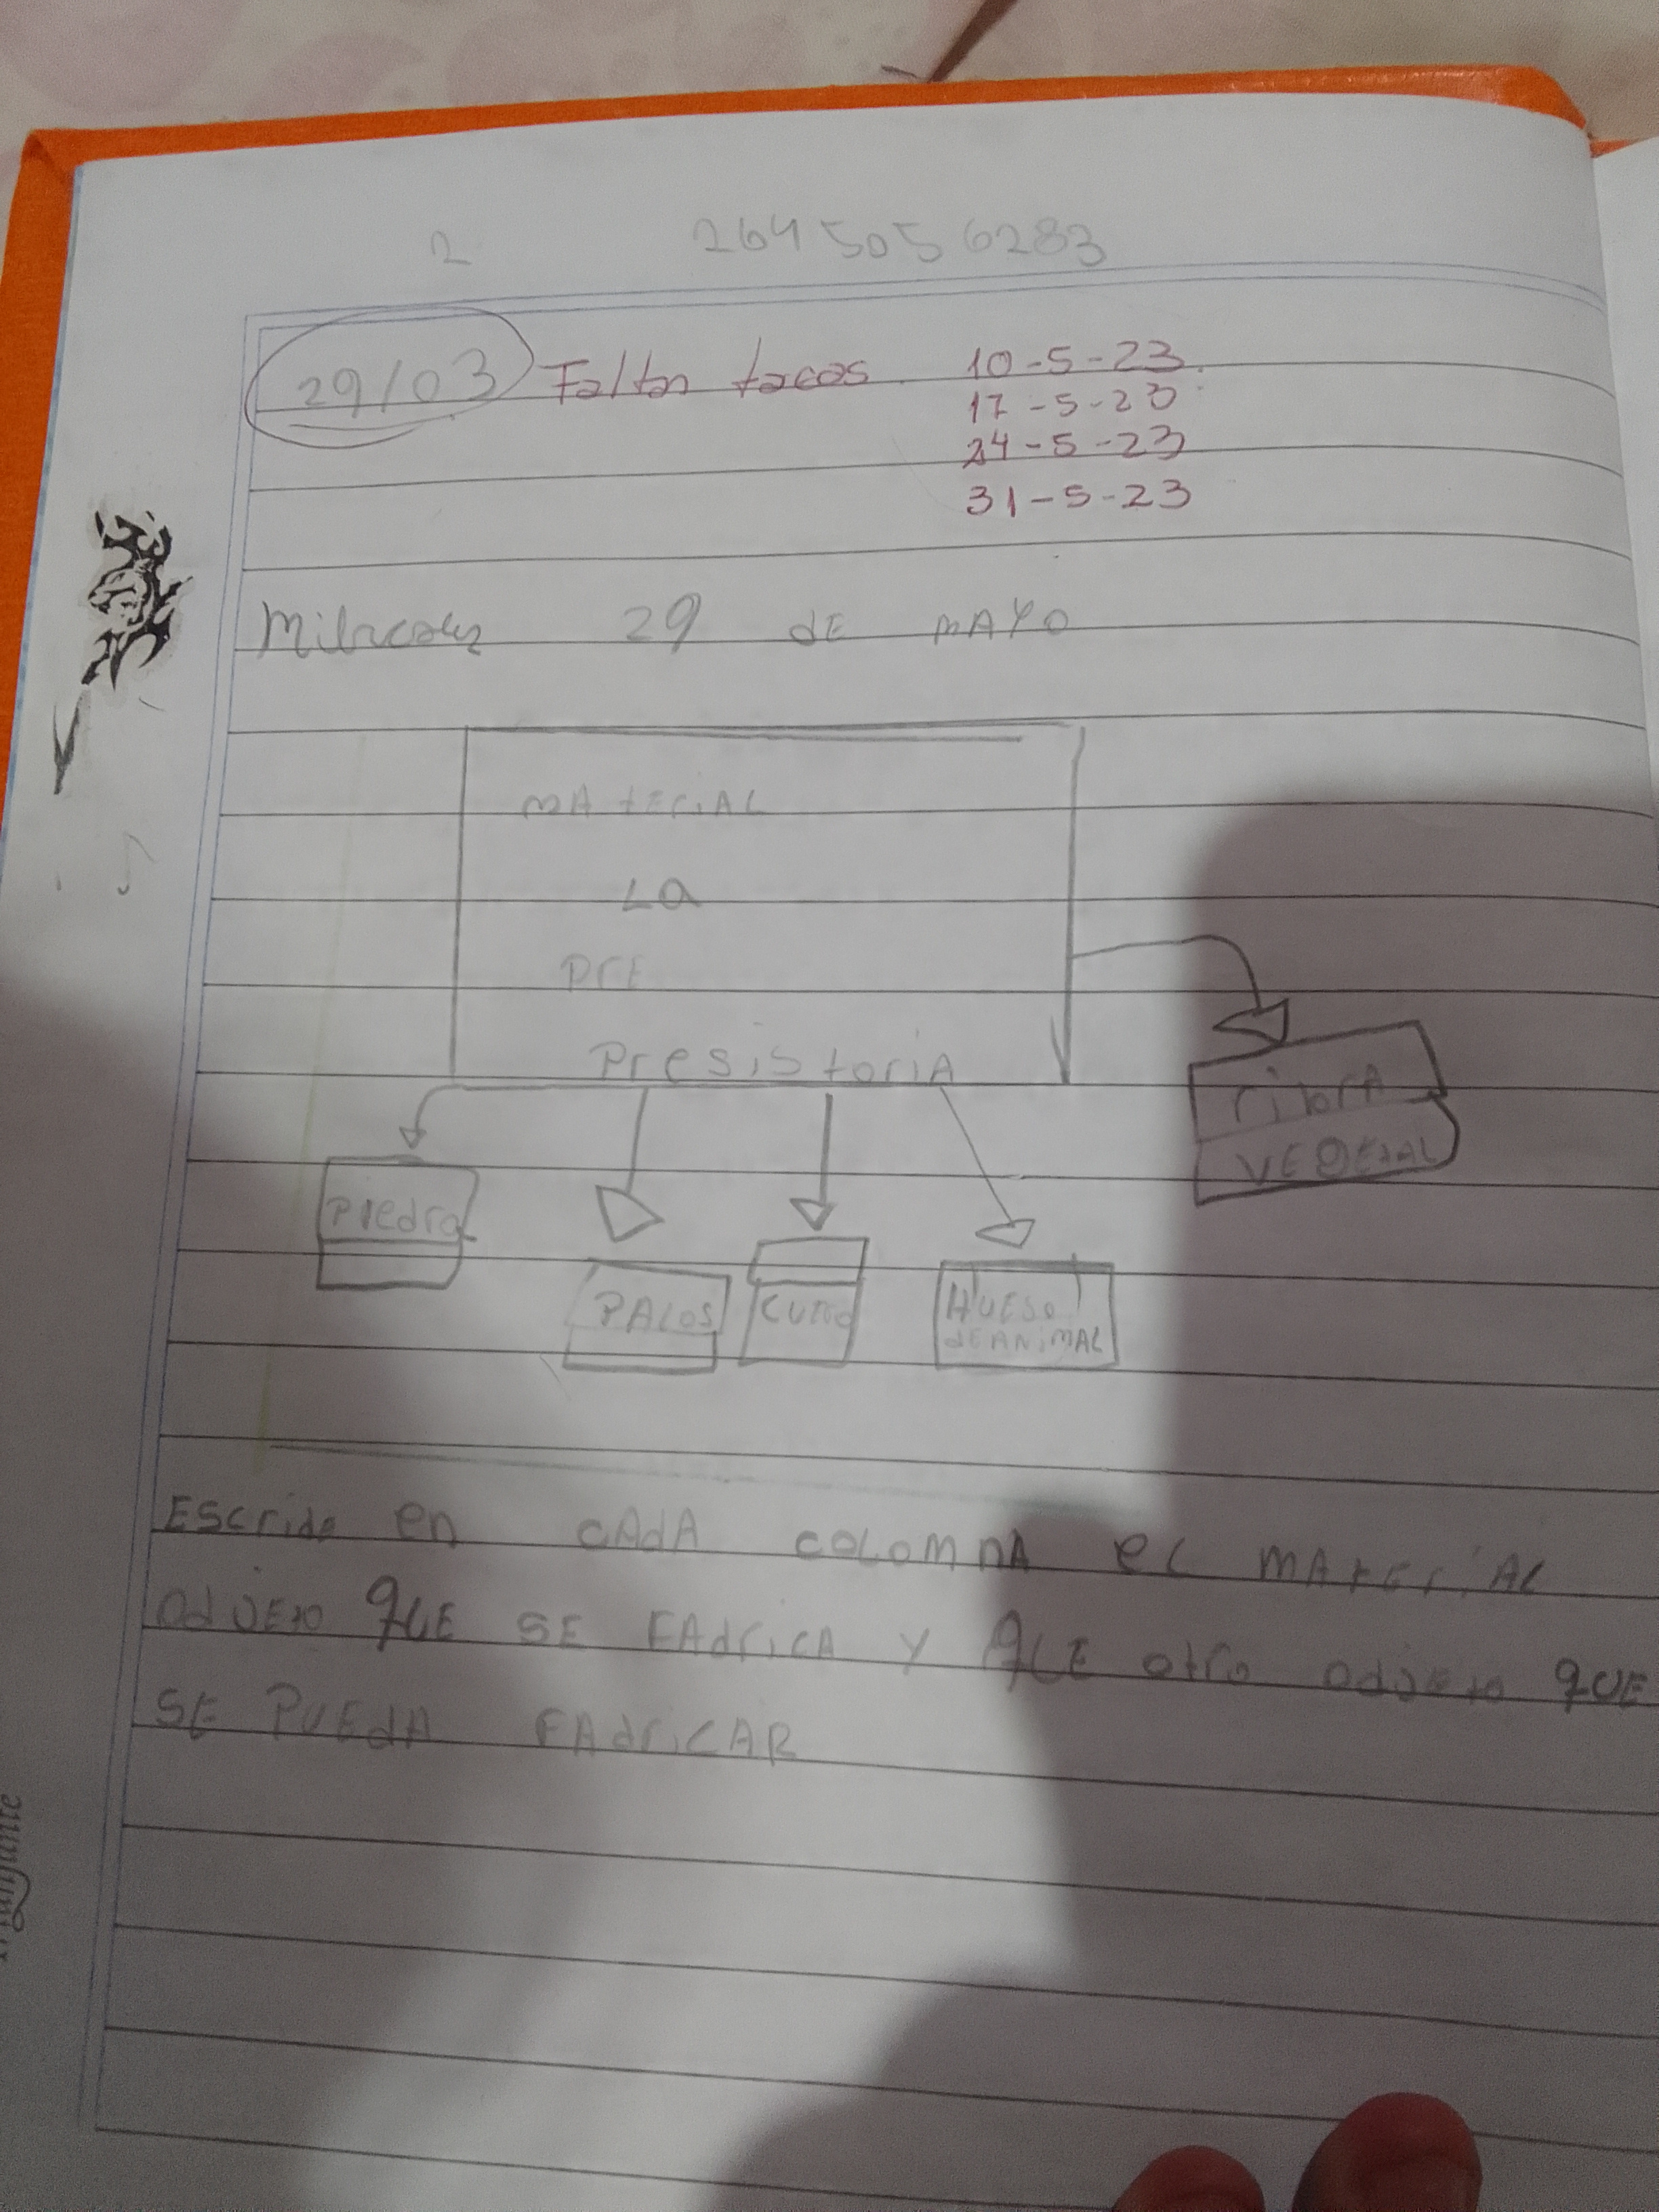 2 264 505 6283
29/03 Faltan tareas. 10-5-23
17-5-23
24-5-23
31-5-23
29 dE MAYO
MATERIAL
LA
PrE
PresistoriA
VEGETAL
Piedra
PALOS
CUERO
HUESO
dEANiMAL
EScride en CAdA COLOMNA el MATEriAL
OdJETO qUE SE FAdriCA Y qUE otro OdJETO qUE
SE PUEdA FAdriCAR